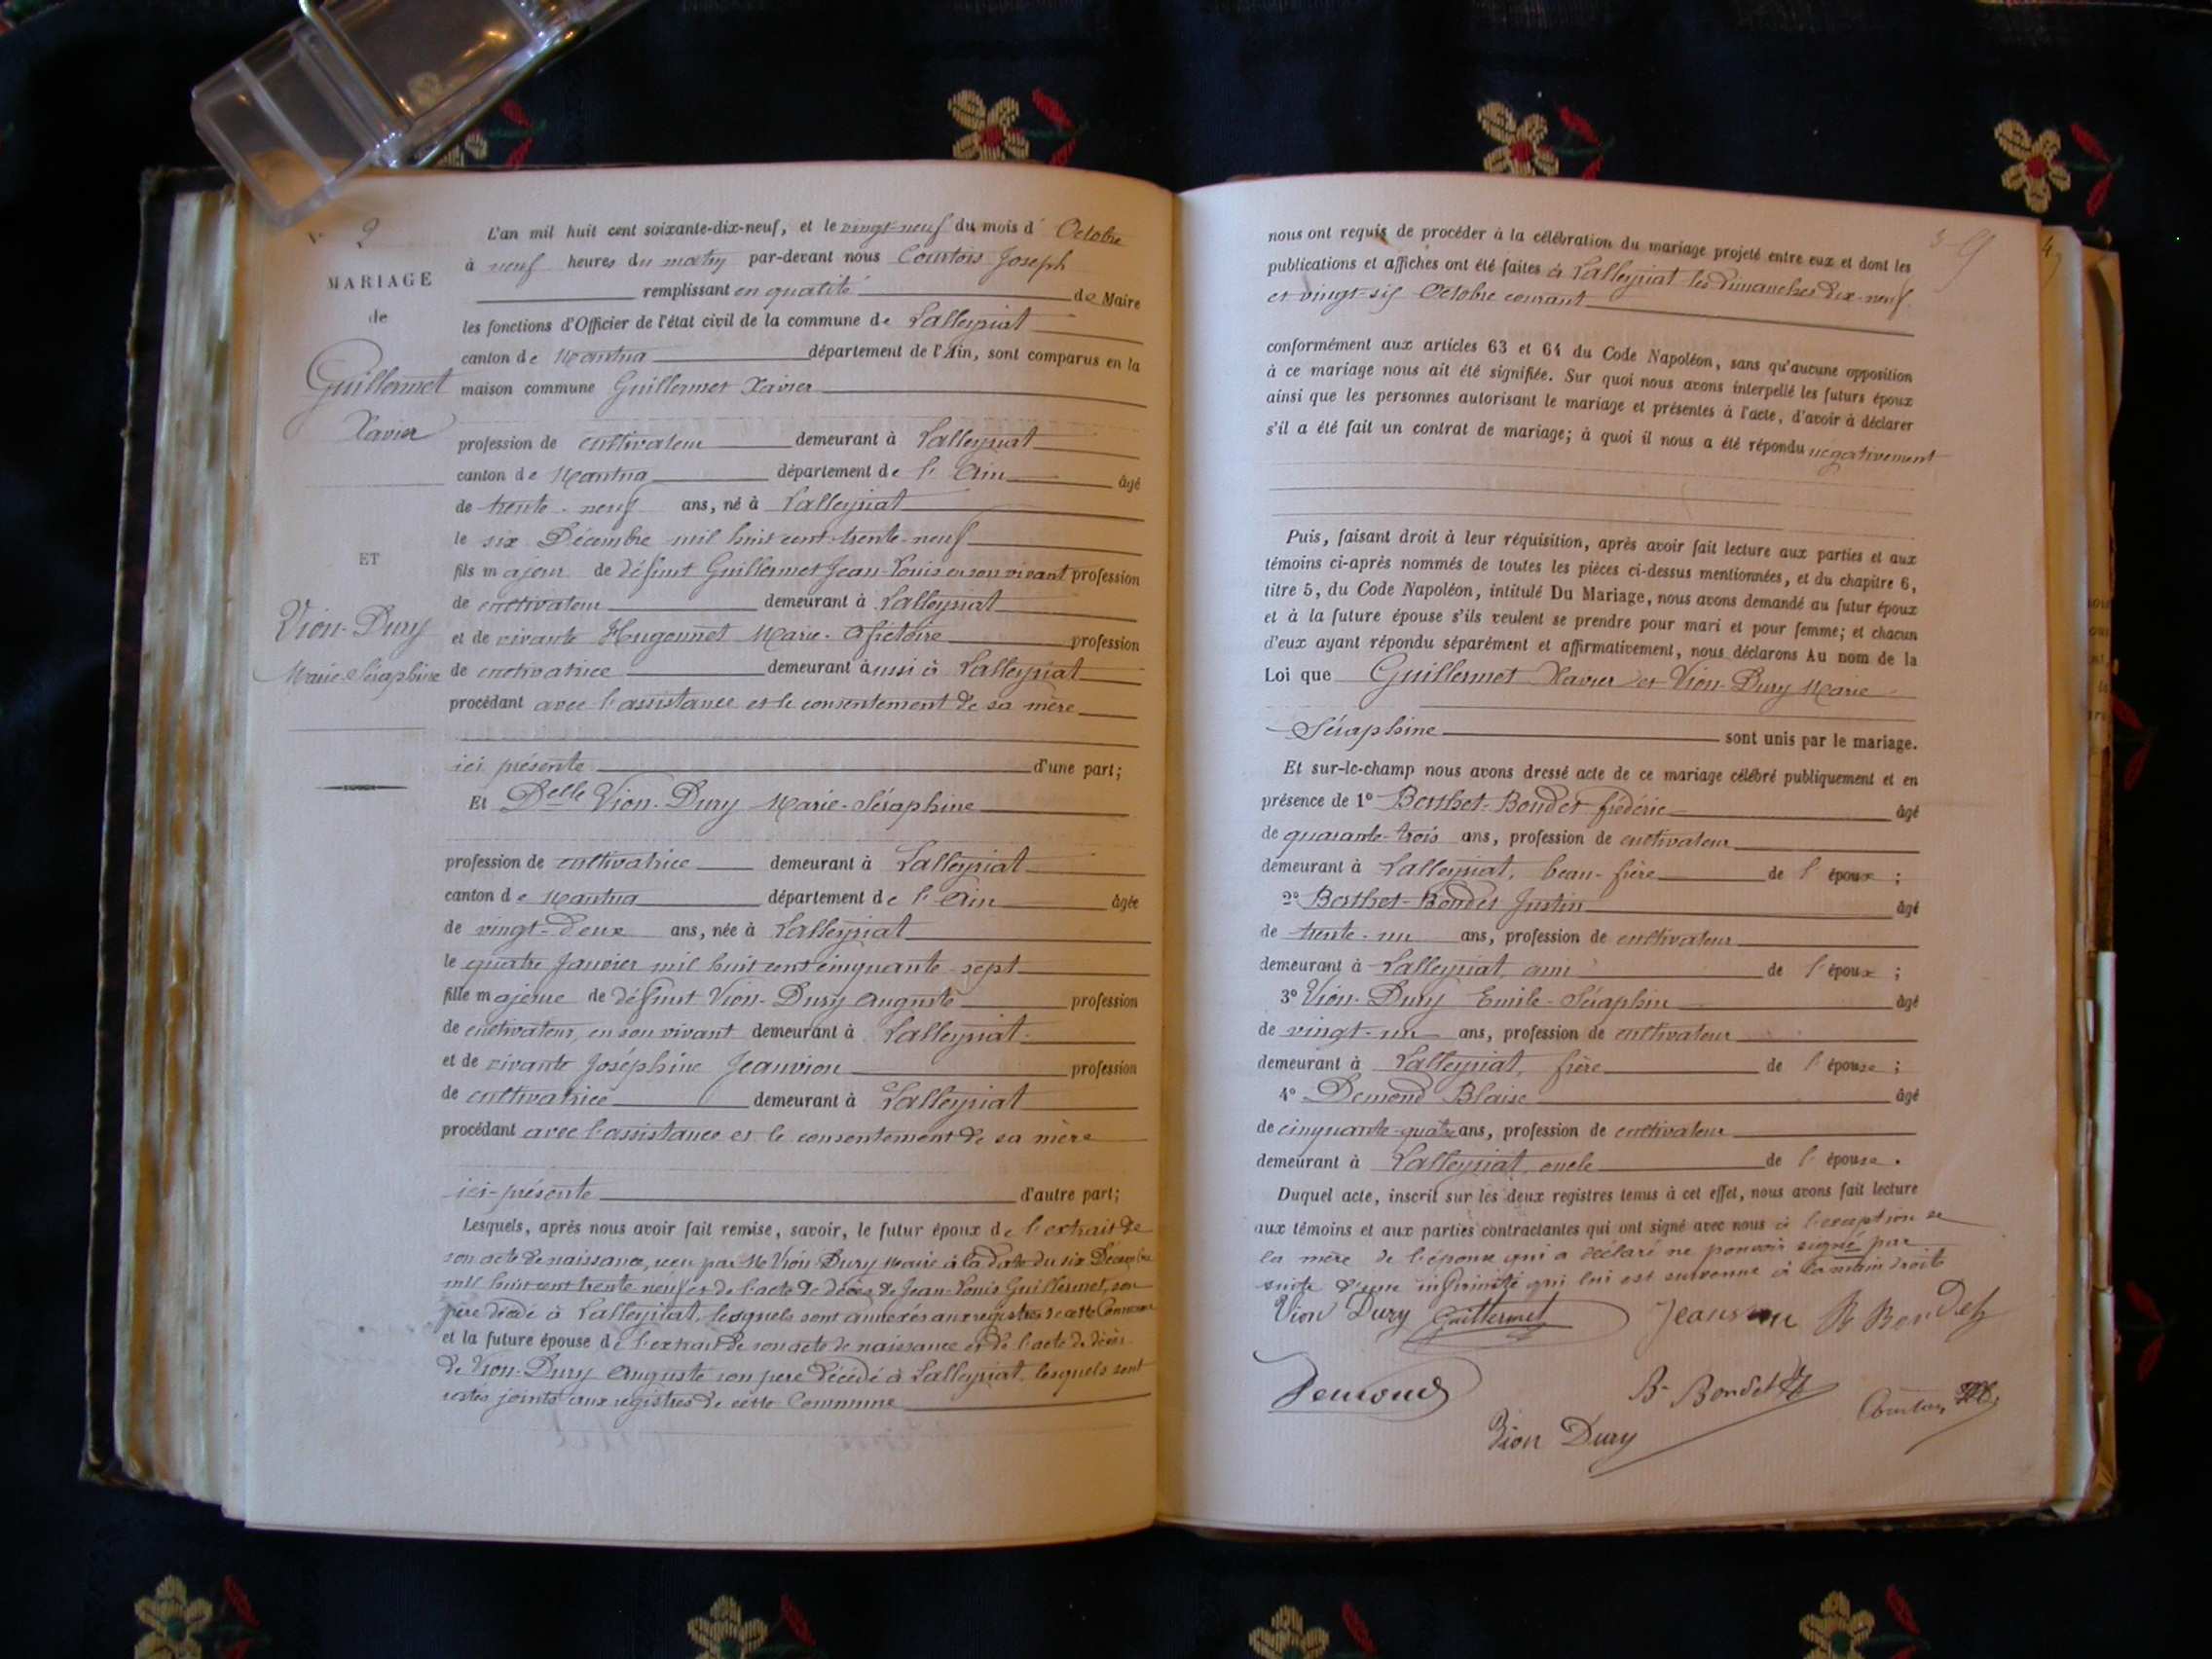 N° 2
MARIAGE
de
Guillermet
Xavier
ET
Vion-Dury
Marie-Séraphine
L'an mil huit cent soixante-dix-neuf, et le vingt-neuf du mois d' Octobre
à neuf heures du matin par-devant nous Courtois Joseph
remplissant en qualité de Maire
les fonctions d'Officier de l'état civil de la commune de Lalleyriat
canton de Nantua département de l'Ain, sont comparus en la
maison commune Guillermet Xavier
profession de cultivateur demeurant à Lalleyriat
canton de Nantua département de l'Ain âgé
de trente-neuf ans, né à Lalleyriat
le six Décembre mil huit cent trente-neuf
fils majeur de défunt Guillermet Jean-Louis en son vivant profession
de cultivateur demeurant à Lalleyriat
et de vivante Hugonnet Marie- profession
de cultivatrice demeurant aussi à Lalleyriat
procédant avec l'assistance et le consentement de sa mère
ici présente d'une part;
Et Delle Vion-Dury Marie-Séraphine
profession de cultivatrice demeurant à Lalleyriat
canton de Nantua département de l'Ain âgée
de vingt-deux ans, née à Lalleyriat
le quatre Janvier mil huit cent cinquante-sept
fille majeure de défunt Vion-Dury Auguste profession
de cultivateur, en son vivant demeurant à Lalleyriat
et de vivante Joséphine Jeanvion profession
de cultivatrice demeurant à Lalleyriat
procédant avec l'assistance et le consentement de sa mère
ici-présente d'autre part;
Lesquels, après nous avoir fait remise, savoir, le futur époux de l'extrait de
son acte de naissance, reçu par Mr Vion Dury Maire à la date du six Décembre
mil huit cent trente-neuf et de l'acte de décès de Jean-Louis Guillermet, son
père décédé à Lalleyriat, lesquels sont annexés aux registres de cette Commune
et la future épouse de l'extrait de son acte de naissance et de l'acte de décès
de Vion-Dury Auguste son père décédé à Lalleyriat, lesquels sont
restés joints aux registres de cette Commune
nous ont requis de procéder à la célébration du mariage projeté entre eux et dont les
publications et affiches ont été faites à Lalleyriat les dimanches dix-neuf
et vingt-six Octobre courant
conformément aux articles 63 et 64 du Code Napoléon, sans qu'aucune opposition
à ce mariage nous ait été signifiée. Sur quoi nous avons interpellé les futurs époux
ainsi que les personnes autorisant le mariage et présentes à l'acte, d'avoir à déclarer
s'il a été fait un contrat de mariage; à quoi il nous a été répondu négativement
Puis, faisant droit à leur réquisition, après avoir fait lecture aux parties et aux
témoins ci-après nommés de toutes les pièces ci-dessus mentionnées, et du chapitre 6,
titre 5, du Code Napoléon, intitulé Du Mariage, nous avons demandé au futur époux
et à la future épouse s'ils veulent se prendre pour mari et pour femme; et chacun
d'eux ayant répondu séparément et affirmativement, nous déclarons Au nom de la
Loi que Guillermet Xavier et Vion-Dury Marie
Séraphine sont unis par le mariage.
Et sur-le-champ nous avons dressé acte de ce mariage célébré publiquement et en
présence de 1° Berthet-Bondet frédéric âgé
de quarante-trois ans, profession de cultivateur
demeurant à Lalleyriat, beau-frère de l'époux ;
2° Berthet-Bondet Justin âgé
de trente-un ans, profession de cultivateur
demeurant à Lalleyriat, ami de l'époux ;
3° Vion-Dury Emile-Séraphin âgé
de vingt-un ans, profession de cultivateur
demeurant à Lalleyriat, frère de l'épouse ;
4° Demond Blaise âgé
de cinquante-quatre ans, profession de cultivateur
demeurant à Lalleyriat, oncle de l'épouse.
Duquel acte, inscrit sur les deux registres tenus à cet effet, nous avons fait lecture
aux témoins et aux parties contractantes qui ont signé avec nous à l'exception de
la mère de l'époux qui a déclaré ne pouvoir signé par
suite d'une infirmité qui lui est survenue à la main droite
Vion Dury Guillermet B Bondet
Demond B- Bondet Courtois
Vion Dury